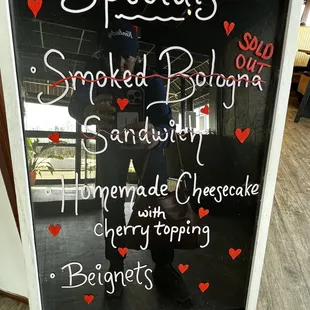 Specials
SOLD
OUT
• Smoked Bologna
Sandwich
• Homemade Cheesecake
with
Cherry topping
• Beignets